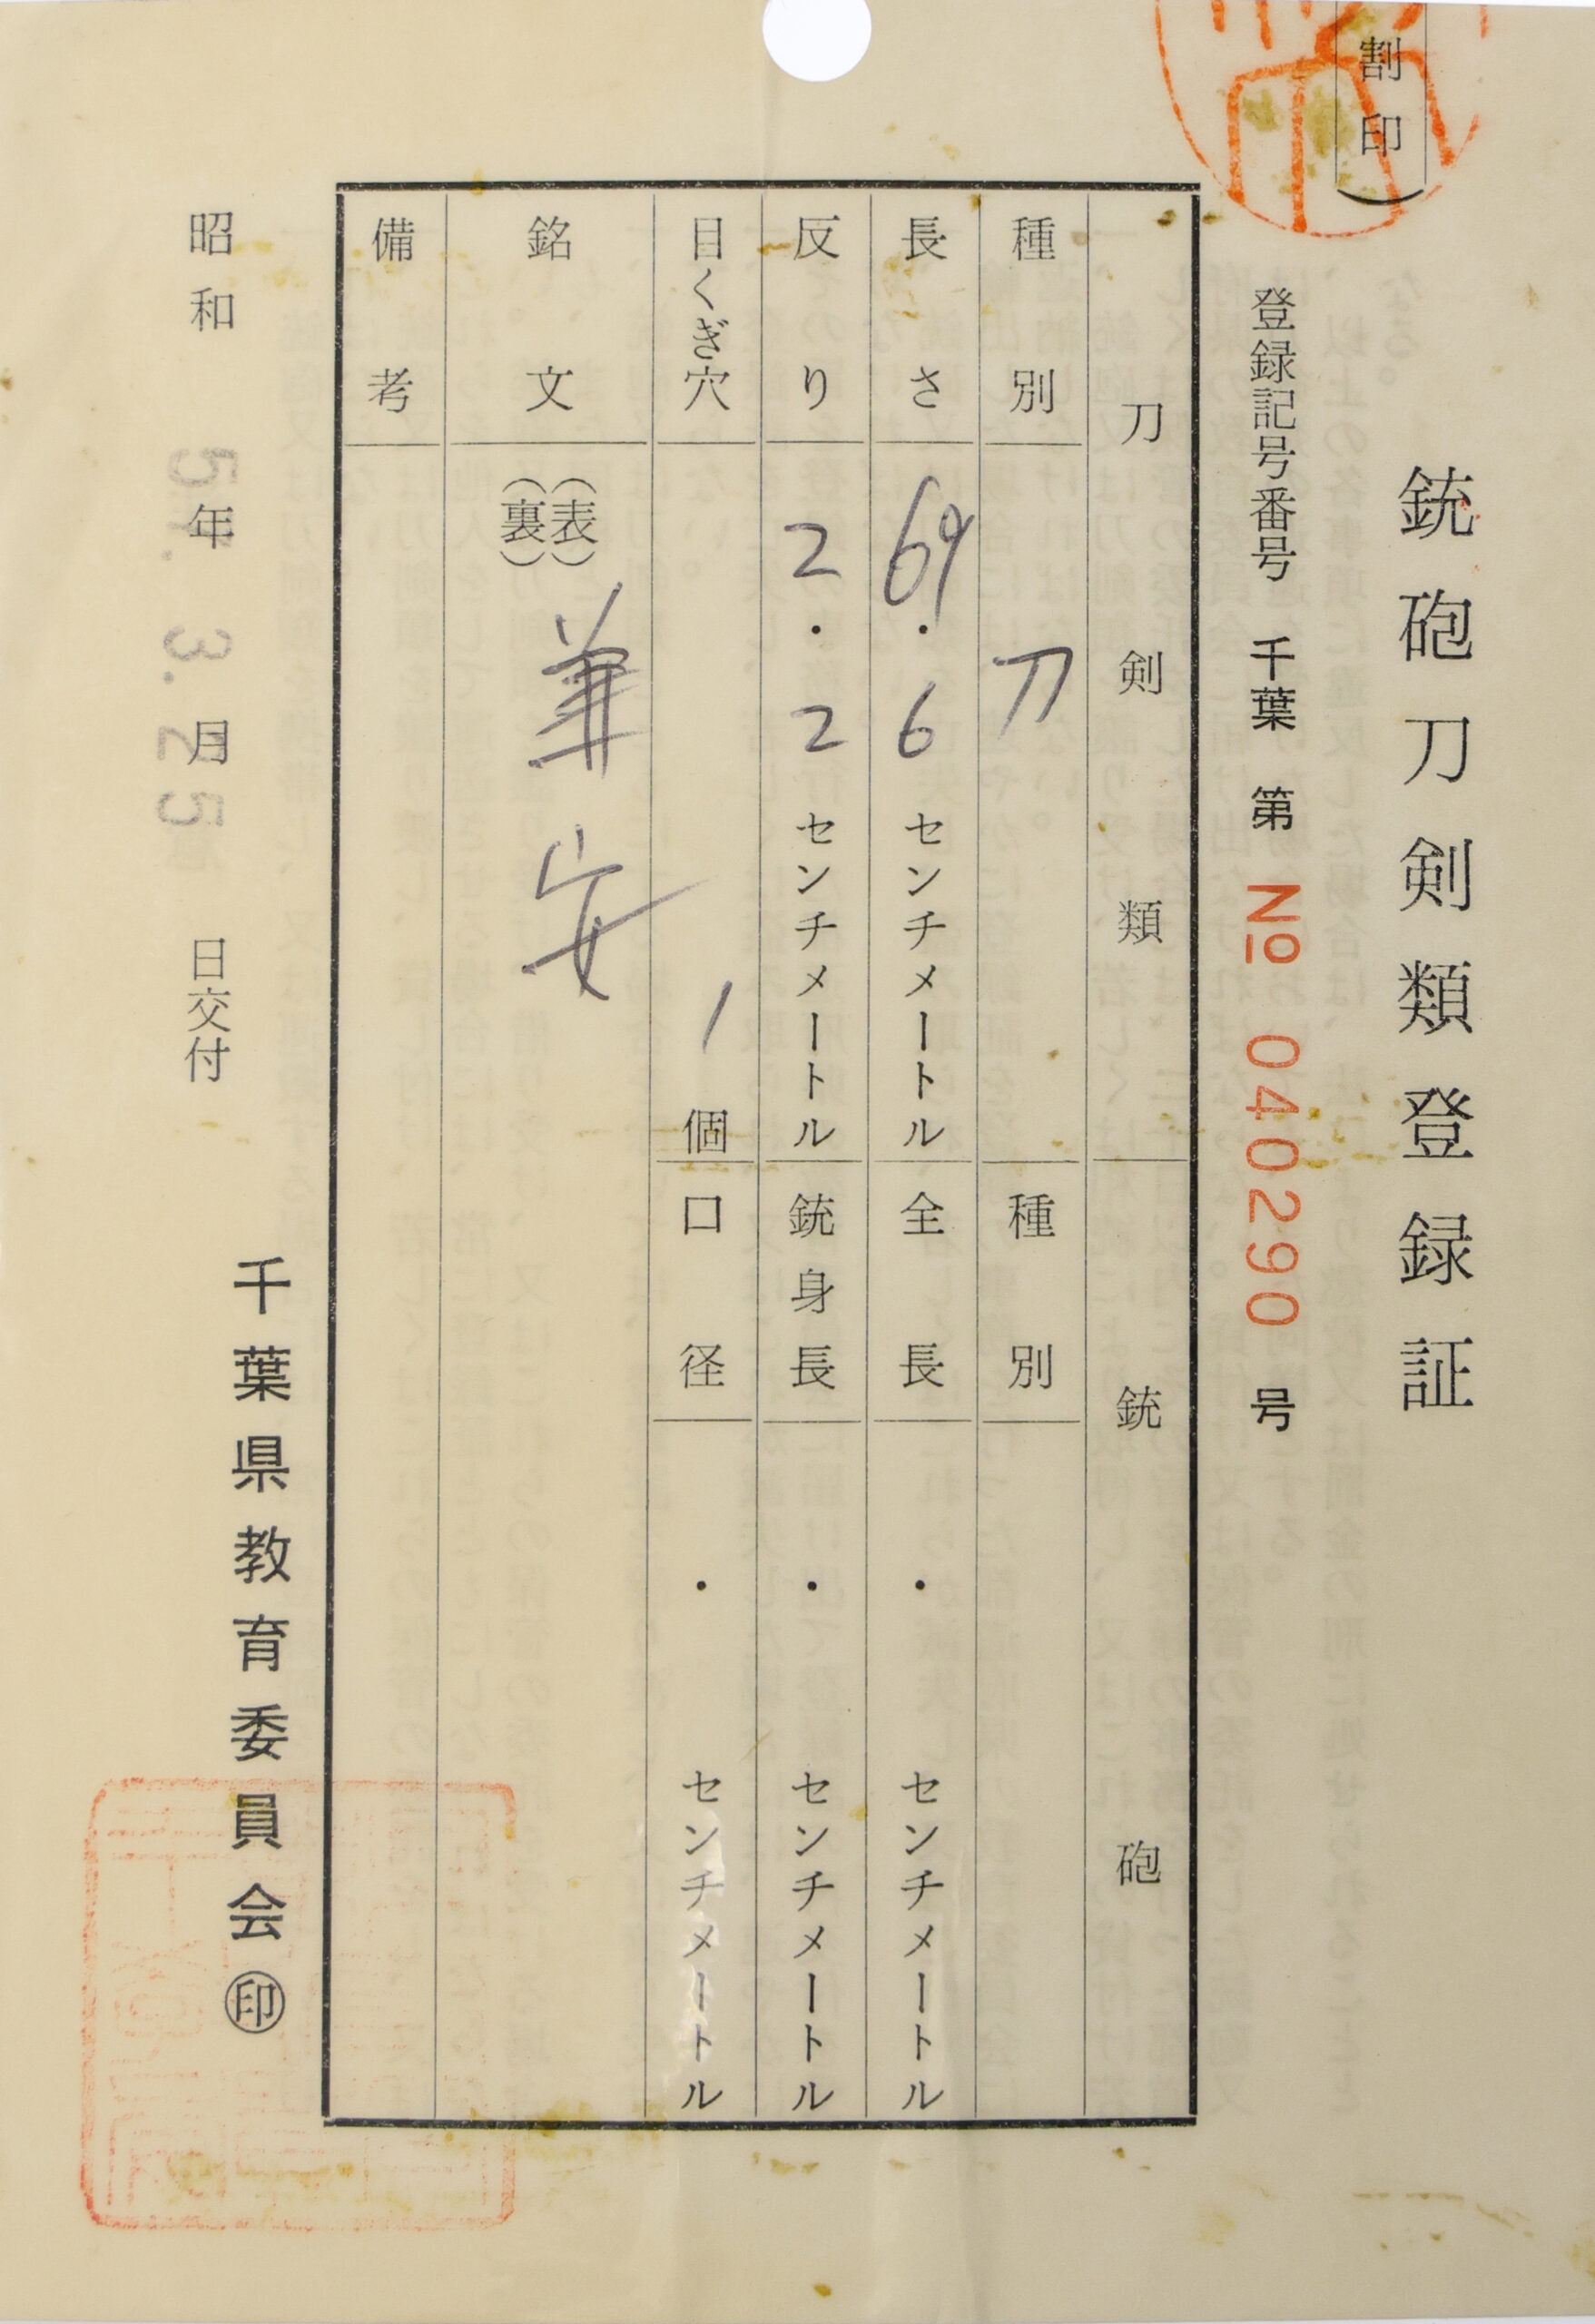 銃砲刀剣類登録証
割印
登録記号番号 千葉 第 № 040290 号
刀剣類
種別 刀
長さ 69.6 センチメートル
反り 2.2 センチメートル
目くぎ穴 1 個
銘文 (表) 兼安
(裏)
備考
銃砲
種別
全長 ・ センチメートル
銃身長 ・ センチメートル
口径 ・ センチメートル
昭和 51年 3.月 25 日交付
千葉県教育委員会㊞